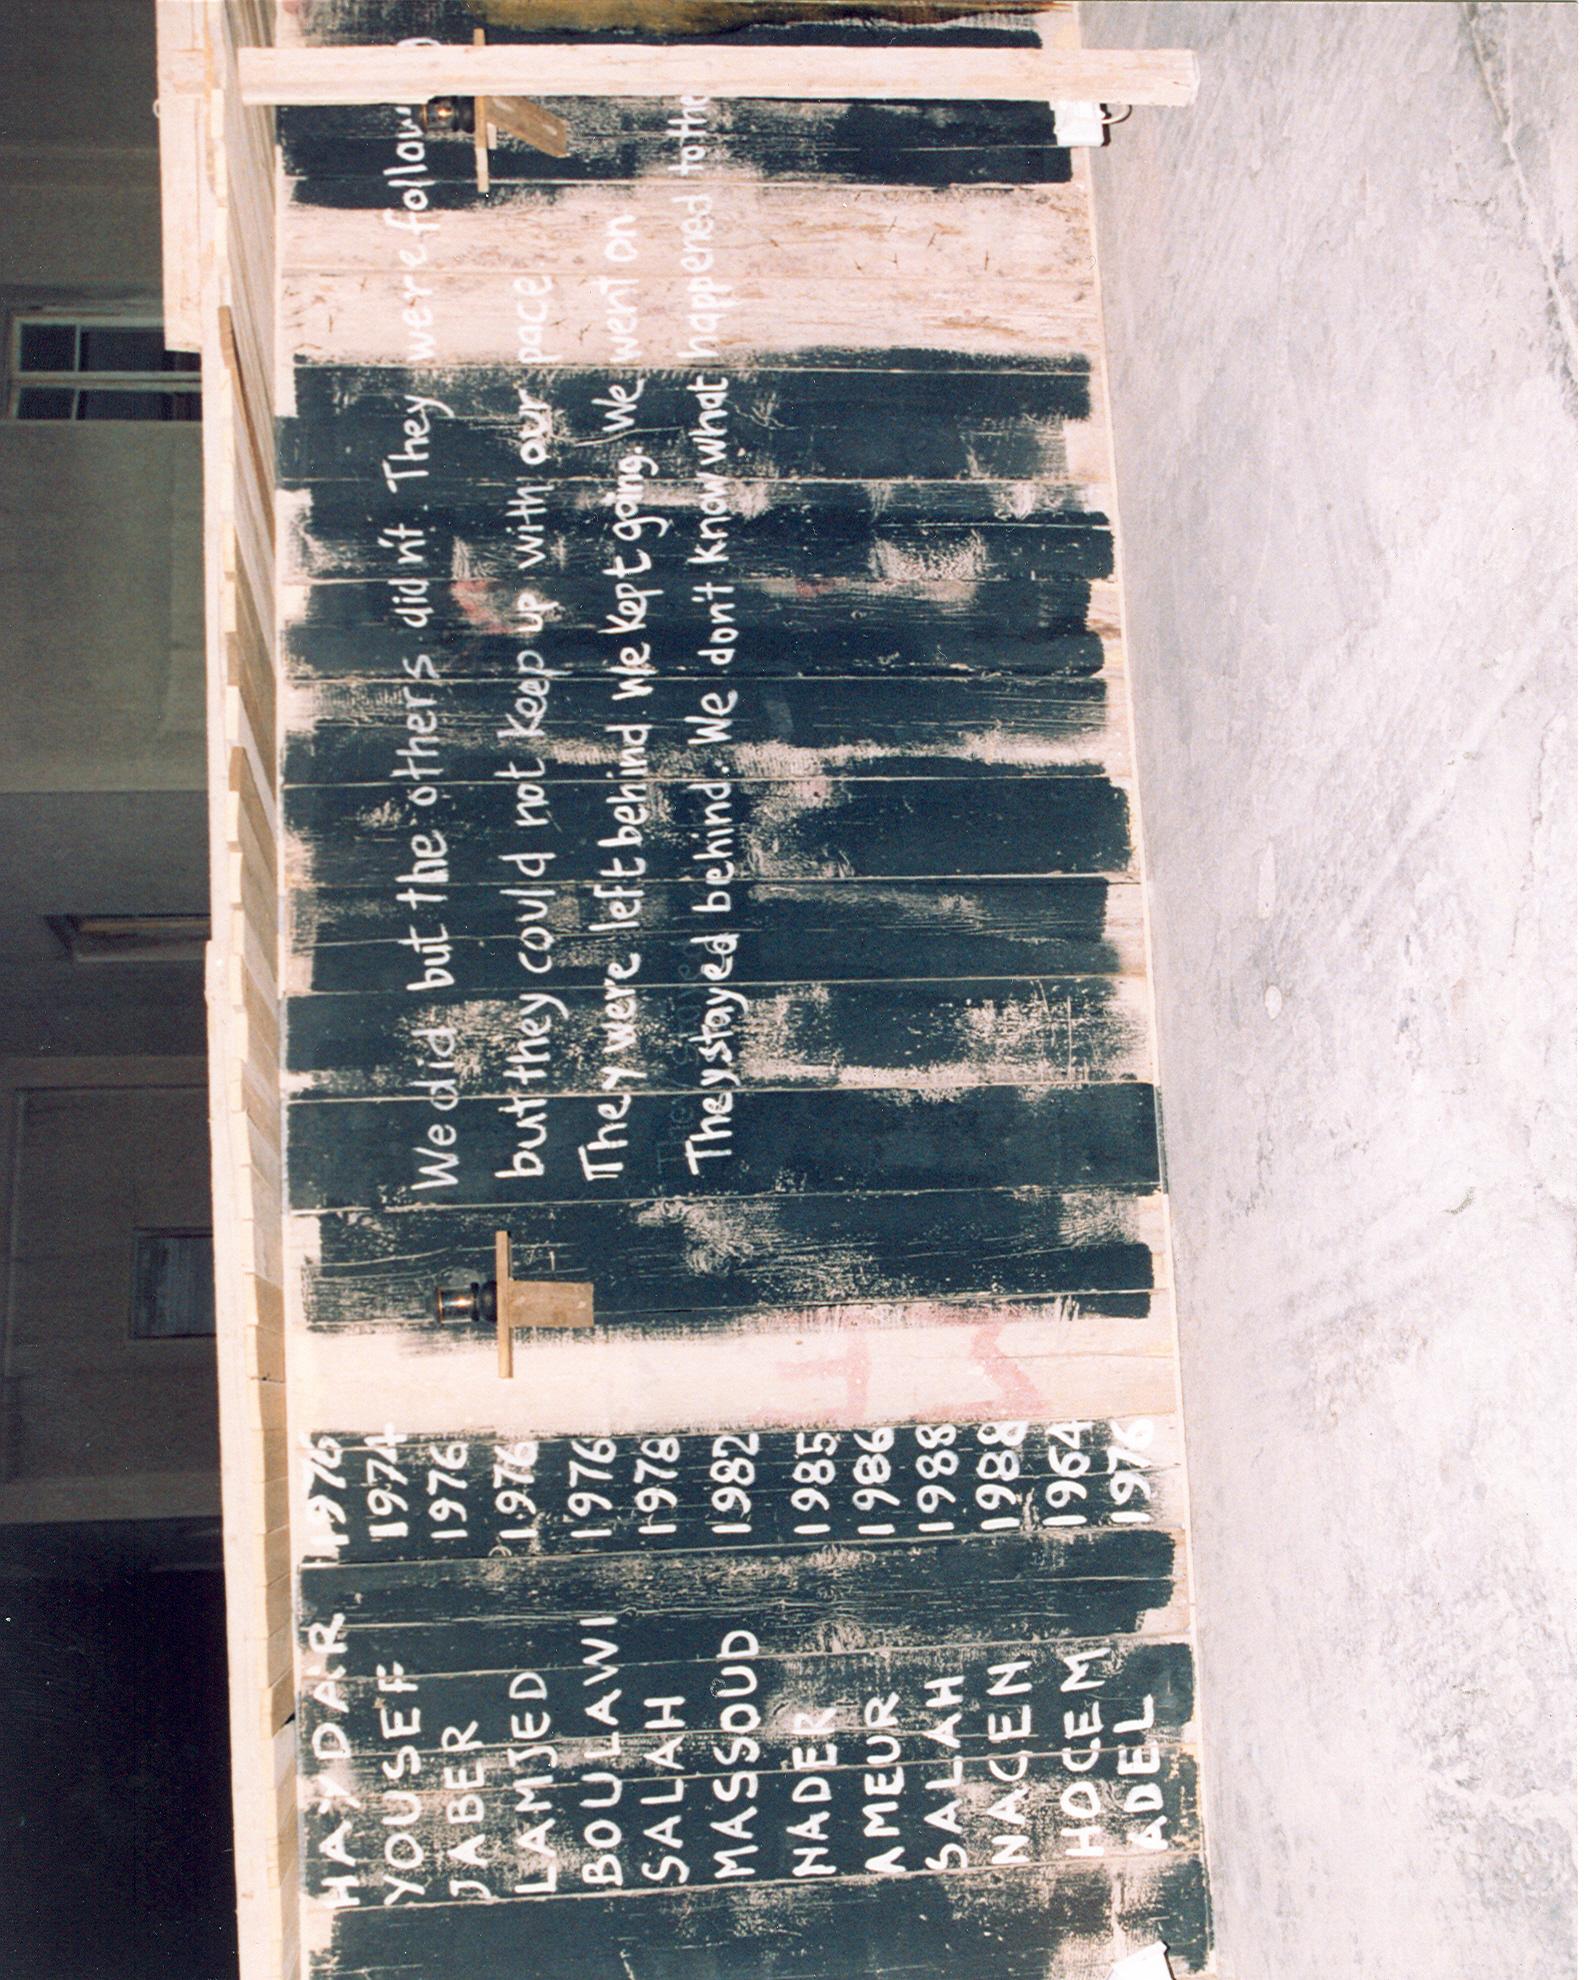 HAYDAR 1976
YOUSEF 1974
JABER 1976
LAMJED 1976
BOULAWI 1976
SALAH 1978
MASSOUD 1982
NADER 1985
AMEUR 1986
SALAH 1988
NACEN 1988
HOCEM 1964
ADEL 1976
We did but the others didn't. They were follow
but they could not keep up with our pace
They were left behind We kept going. We went on
They stayed behind. We don't know what happened to the